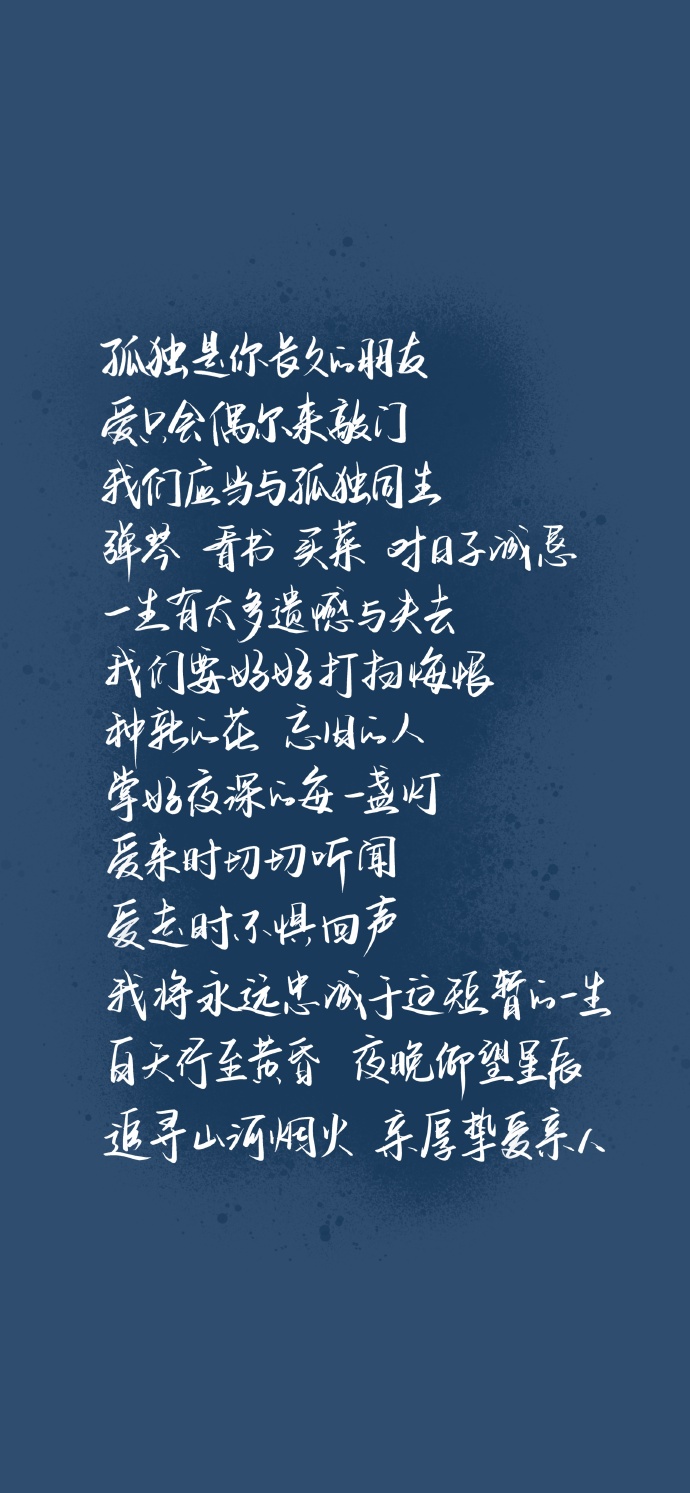 孤独是你长久的朋友
爱只会偶尔来敲门
我们应当与孤独同生
弹琴 看书 买菜 对日子诚恳
一生有太多遗憾与失去
我们要好好打扫悔恨
种新的花 忘旧的人
掌好夜深的每一盏灯
爱来时切切听闻
爱走时不惧回声
我将永远忠诚于这短暂的一生
白天行至黄昏 夜晚仰望星辰
追寻山河烟火 亲厚挚爱亲人